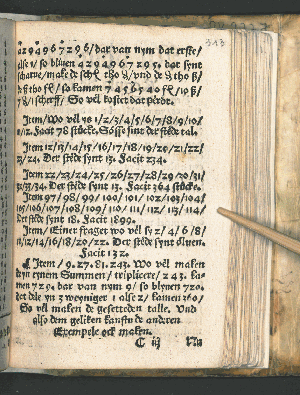 313
4294967296/ dar van nym dat erste/
alse 1/ so blyuen 4294967295. dar synt
scharue/ make de schl tho ß/ vnd de ß tho
so kamen 7456540
schriff/ So vel kostet dat perdt.
Item/ Wo vel ys 1/2/3/4/5/6/7/8/9/10/
11/12. Facit 78 stücke. Sö sse sint der stede tal.
Item 12/13/14/15/16/17/18/19/20/21/22/
23/24. Der stede synt 13. Facit 234.
Item 22/23/24/25/26/27/28/29/30/31/
32/33/34. Der stede synt 13. Facit 364 stücke.
Item 97/98/99/100/101/102/103/104/
105/106/107/108/109/110/111/112/113/114/
der stede synt 18. Facit 1899.
Item/ Einer fraget wo vel sy 2/4/6/8/
10/12/14/16/18/20/22. Der stede synt eluen.
Facit 132.
¶ Item/ 9.27.81.243. Wo vel maken
deyn eynem Summen/ triplicere/ 243. ka-
men 729. dar van nym 9/ so blyuen 720.
det dele yn 2 weyniger 1 alse 2/ kamen 360/
So vel maken de gesetteden talle. Vnd
also dem geliken kanstu de anderen
Exempele ock maken.
C iij Nu